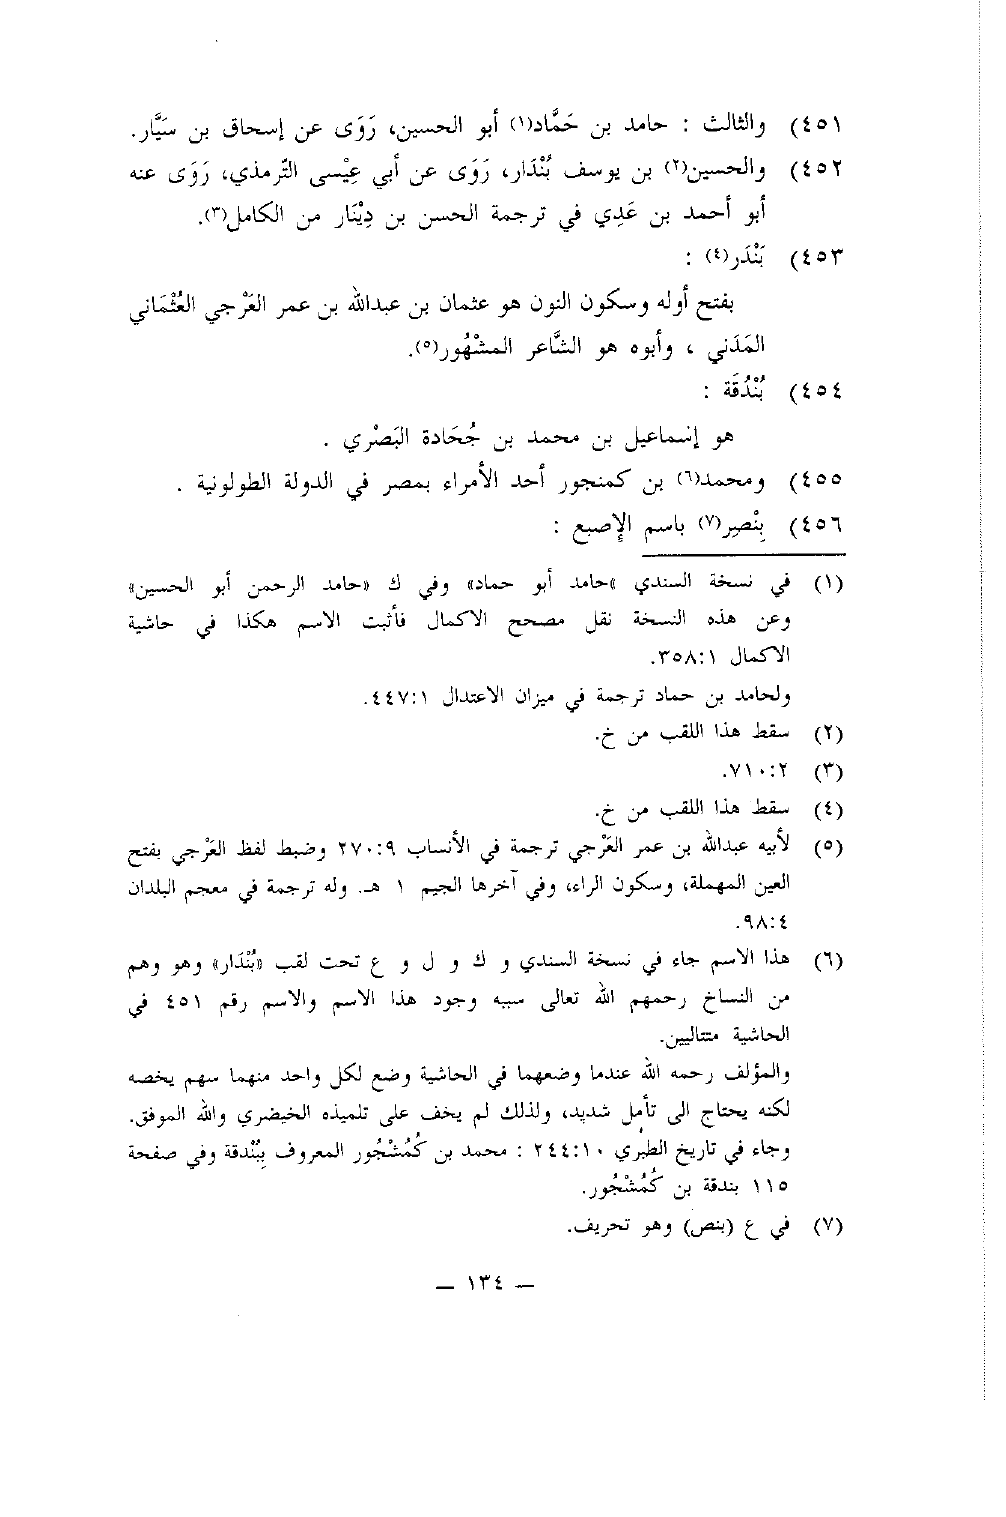 ٤٥١) والثالث : حامد بن حَمَّاد(١) أبو الحسين، رَوَى عن إسحاق بن سَيَّار.
٤٥٢) والحسين(٢) بن يوسف بُنْدَار، رَوَى عن أبي عِيْسى التّرمذي، رَوَى عنه
أبو أحمد بن عَدِي في ترجمة الحسن بن دِيْنَار من الكامل(٣).
٤٥٣) بَنْدَر(٤) :
بفتح أوله وسكون النون هو عثمان بن عبدالله بن عمر العَرْجي العُثْمَاني
المَدَني ، وأبوه هو الشَّاعر المشْهُور(٥).
٤٥٤) بُنْدُقَة :
هو إسماعيل بن محمد بن جُحَادة البَصْري .
٤٥٥) ومحمد(٦) بن كمنجور أحد الأمراء بمصر في الدولة الطولونية .
٤٥٦) بِنْصِر(٧) باسم الإصبع :
(١) في نسخة السندي «حامد أبو حماد» وفي ك «حامد الرحمن أبو الحسين»
وعن هذه النسخة نقل مصحح الاكمال فأثبت الاسم هكذا في حاشية
الاكمال ٣٥٨:١.
ولحامد بن حماد ترجمة في ميزان الاعتدال ٤٤٧:١.
(٢) سقط هذا اللقب من خ.
(٣) ٧١٠:٢.
(٤) سقط هذا اللقب من خ.
(٥) لأبيه عبدالله بن عمر العَرْجي ترجمة في الأنساب ٢٧٠:٩ وضبط لفظ العَرْجي بفتح
العين المهملة، وسكون الراء، وفي آخرها الجيم ١ هـ. وله ترجمة في معجم البلدان
٩٨:٤.
(٦) هذا الاسم جاء في نسخة السندي و ك و ل و ع تحت لقب «بُنْدَار» وهو وهم
من النساخ رحمهم الله تعالى سببه وجود هذا الاسم والاسم رقم ٤٥١ في
الحاشية متتاليين.
والمؤلف رحمه الله عندما وضعهما في الحاشية وضع لكل واحد منهما سهم يخصه
لكنه يحتاج الى تأمل شديد، ولذلك لم يخف على تلميذه الخيضري والله الموفق.
وجاء في تاريخ الطبري ٢٤٤:١٠ : محمد بن كُمُشْجُور المعروف بِبُنْدقة وفي صفحة
١١٥ بندقة بن كُمُشْجُور.
(٧) في ع (بنص) وهو تحريف.
— ١٣٤ —